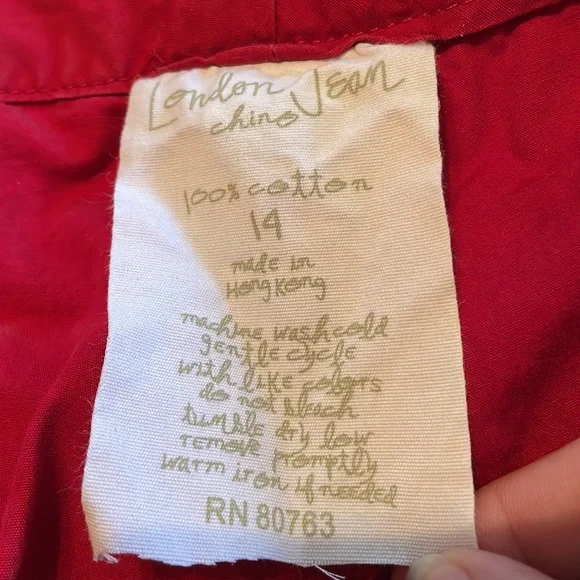 London Jean
chino
100% cotton
14
made in
Hong Kong
machine wash cold
gentle cycle
with like colours
do not bleach
tumble dry low
remove promptly
warm iron if needed
RN 80763